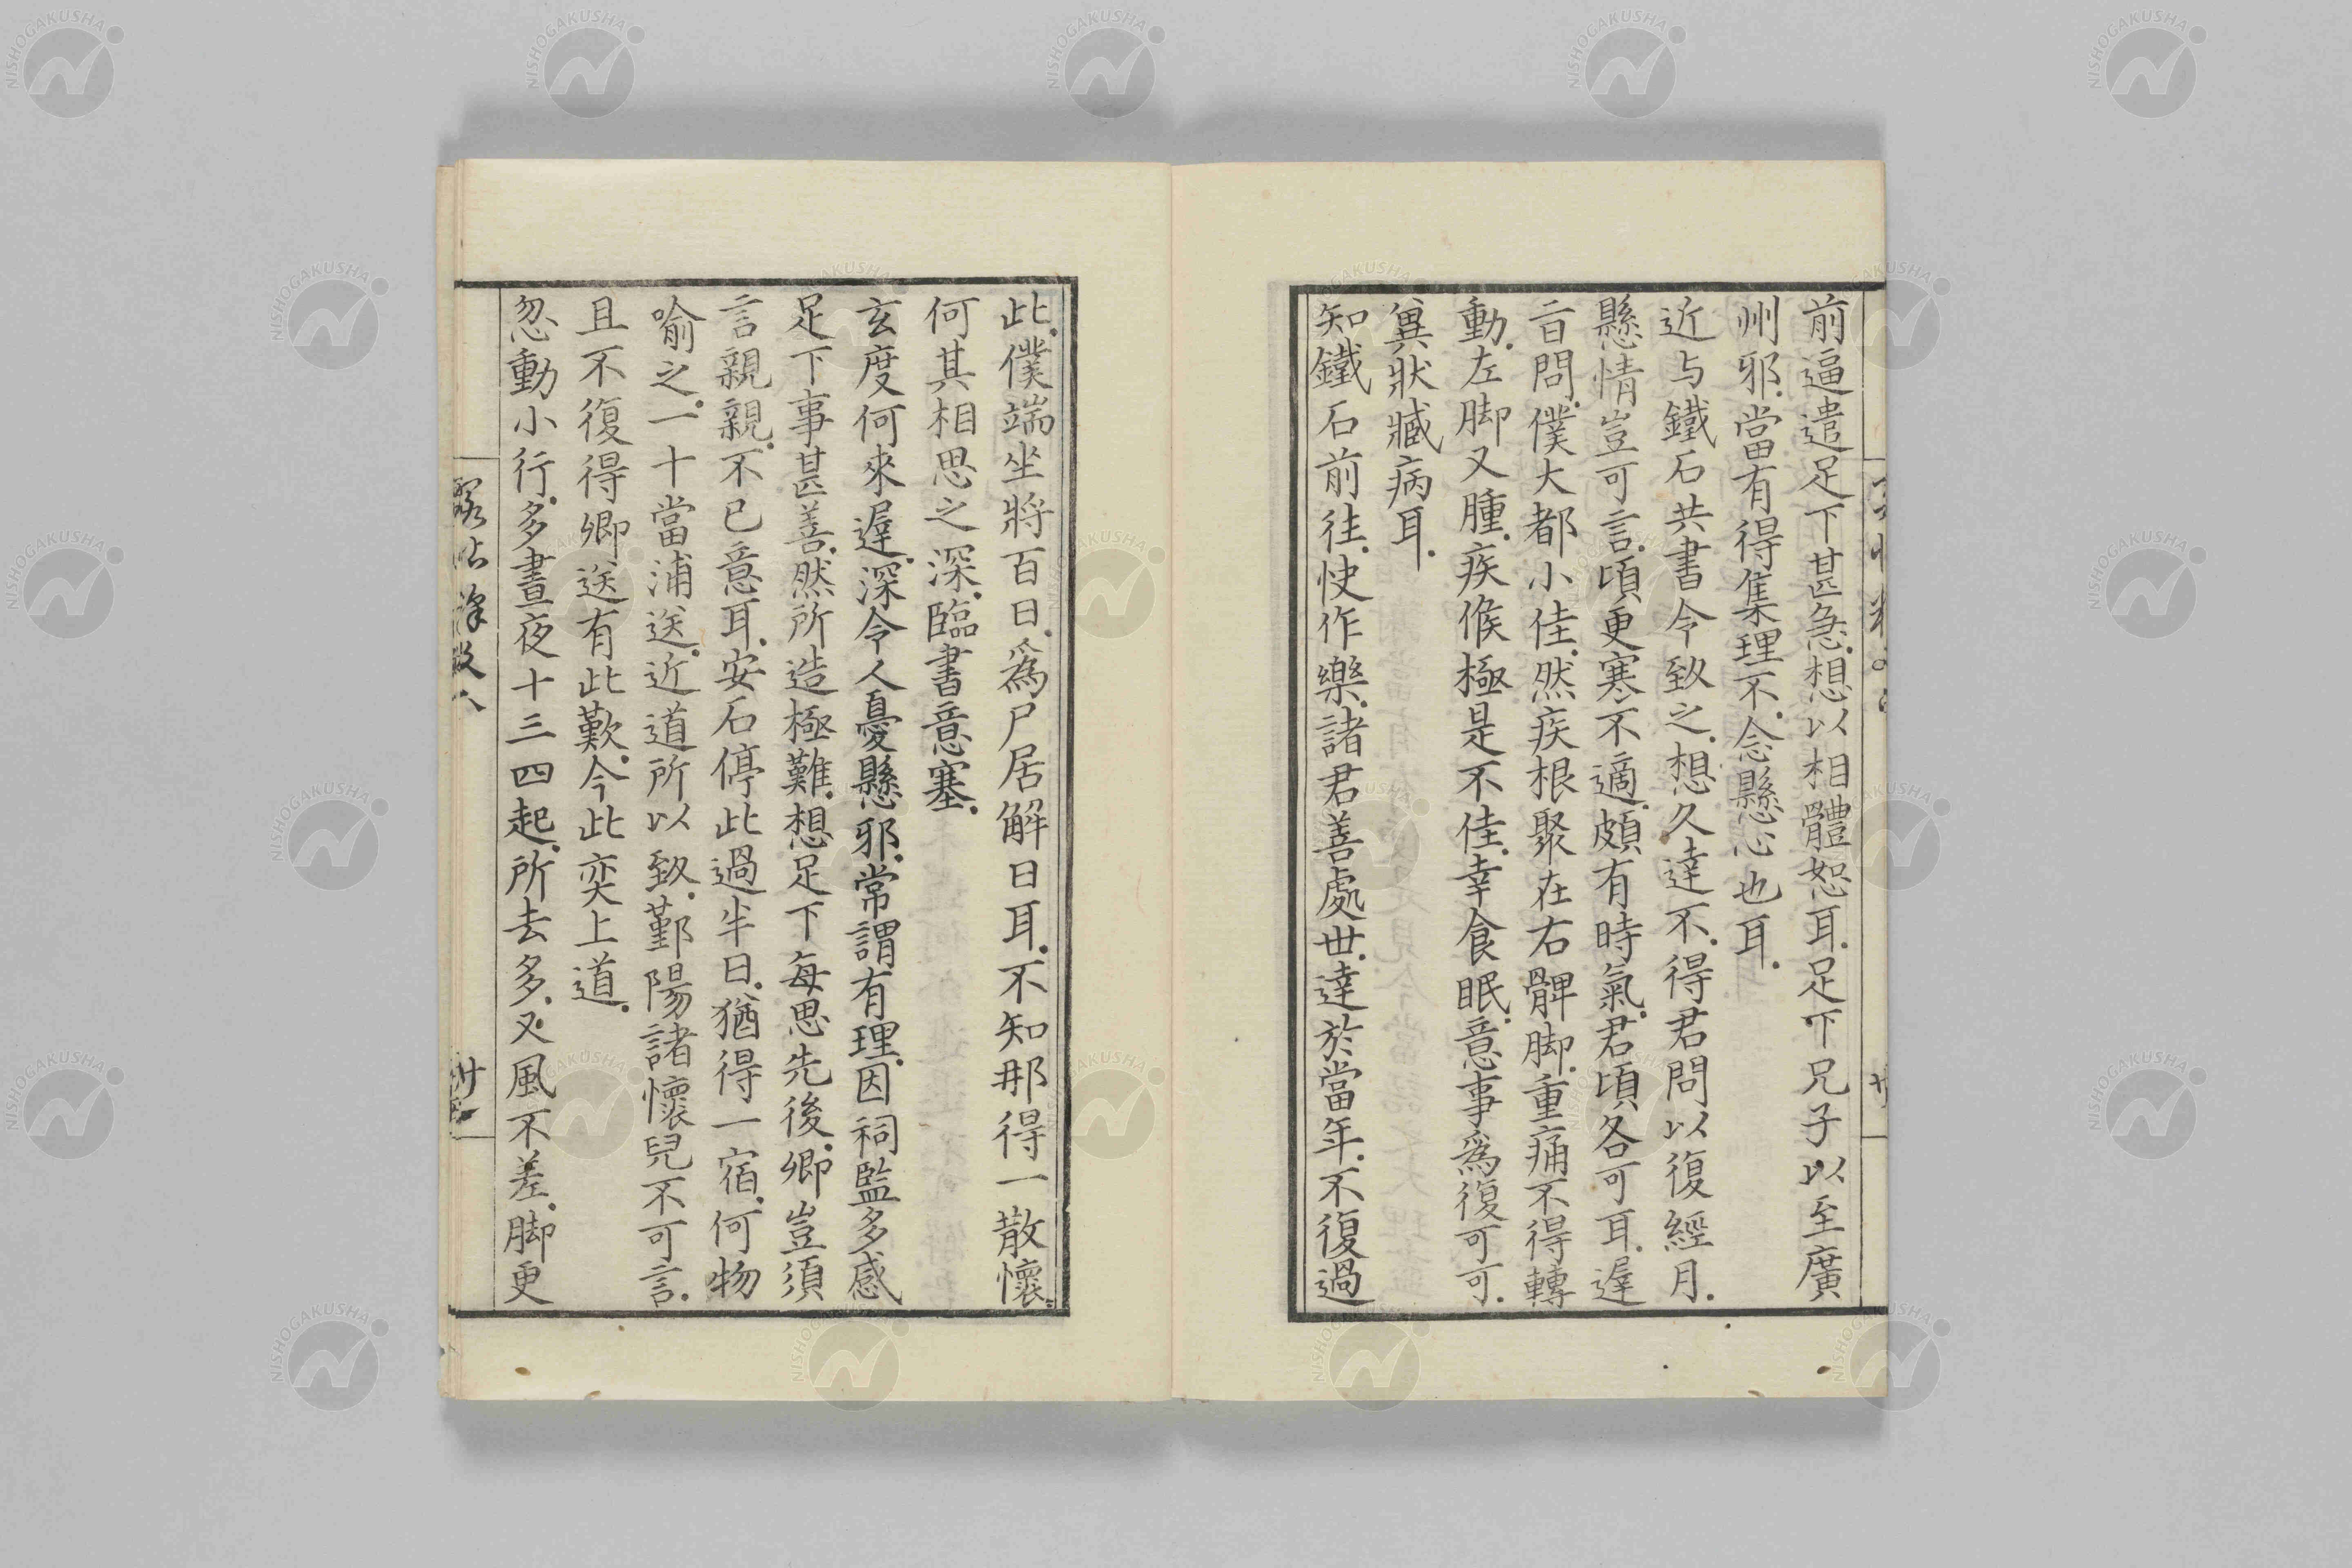 前逼遣足下甚急.想以相體恕耳.足下兄子以至廣
州邪.當有得集理不.念懸心也耳.
近与鐵石共書令致之.想久達不.得君問以復經月.
懸情豈可言.頃更寒不適.頗有時氣.君頃各可耳.遲
旨問.僕大都小佳.然疾根聚在右髀脚.重痛不得轉
動.左脚又腫.疾候極是不佳.幸食眠.意事為復可可.
冀狀臧病耳.
知鐵石前往.快作樂.諸君善處世.達於當年.不復過
此.僕端坐將百日.為尸居解日耳.不知那得一散懷.
何其相思之深.臨書意塞.
玄度何來遲.深令人憂懸邪.常謂有理.因祠監多感
足下事甚善.然所造極難.想足下每思先後.卿豈須
言親親.不已意耳.安石停此過半日.猶得一宿.何物
喻之.一十當浦送.近道所以致.鄞陽諸懷兒不可言.
且不復得卿送有此歎.今此奕上道.
忽動小行.多晝夜十三四起.所去多.又風不差.脚更
NISHOGAKUSHA